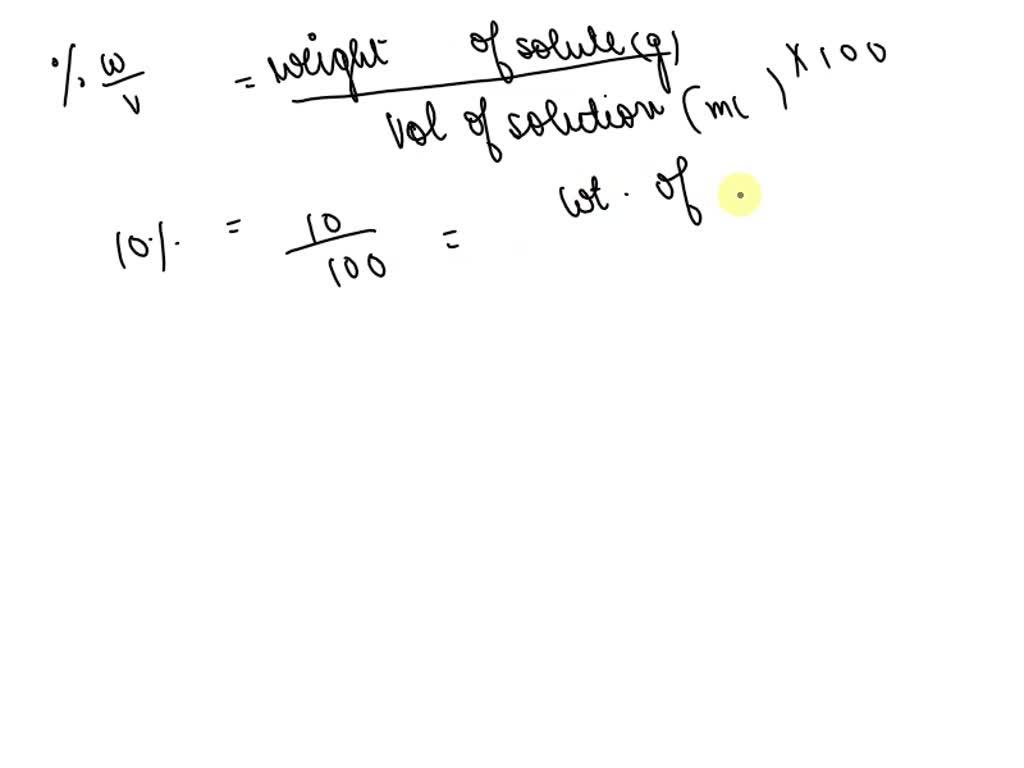 % w/v = weight of solute (g) / vol of solution (ml) × 100
10% = 10/100 = wt. of